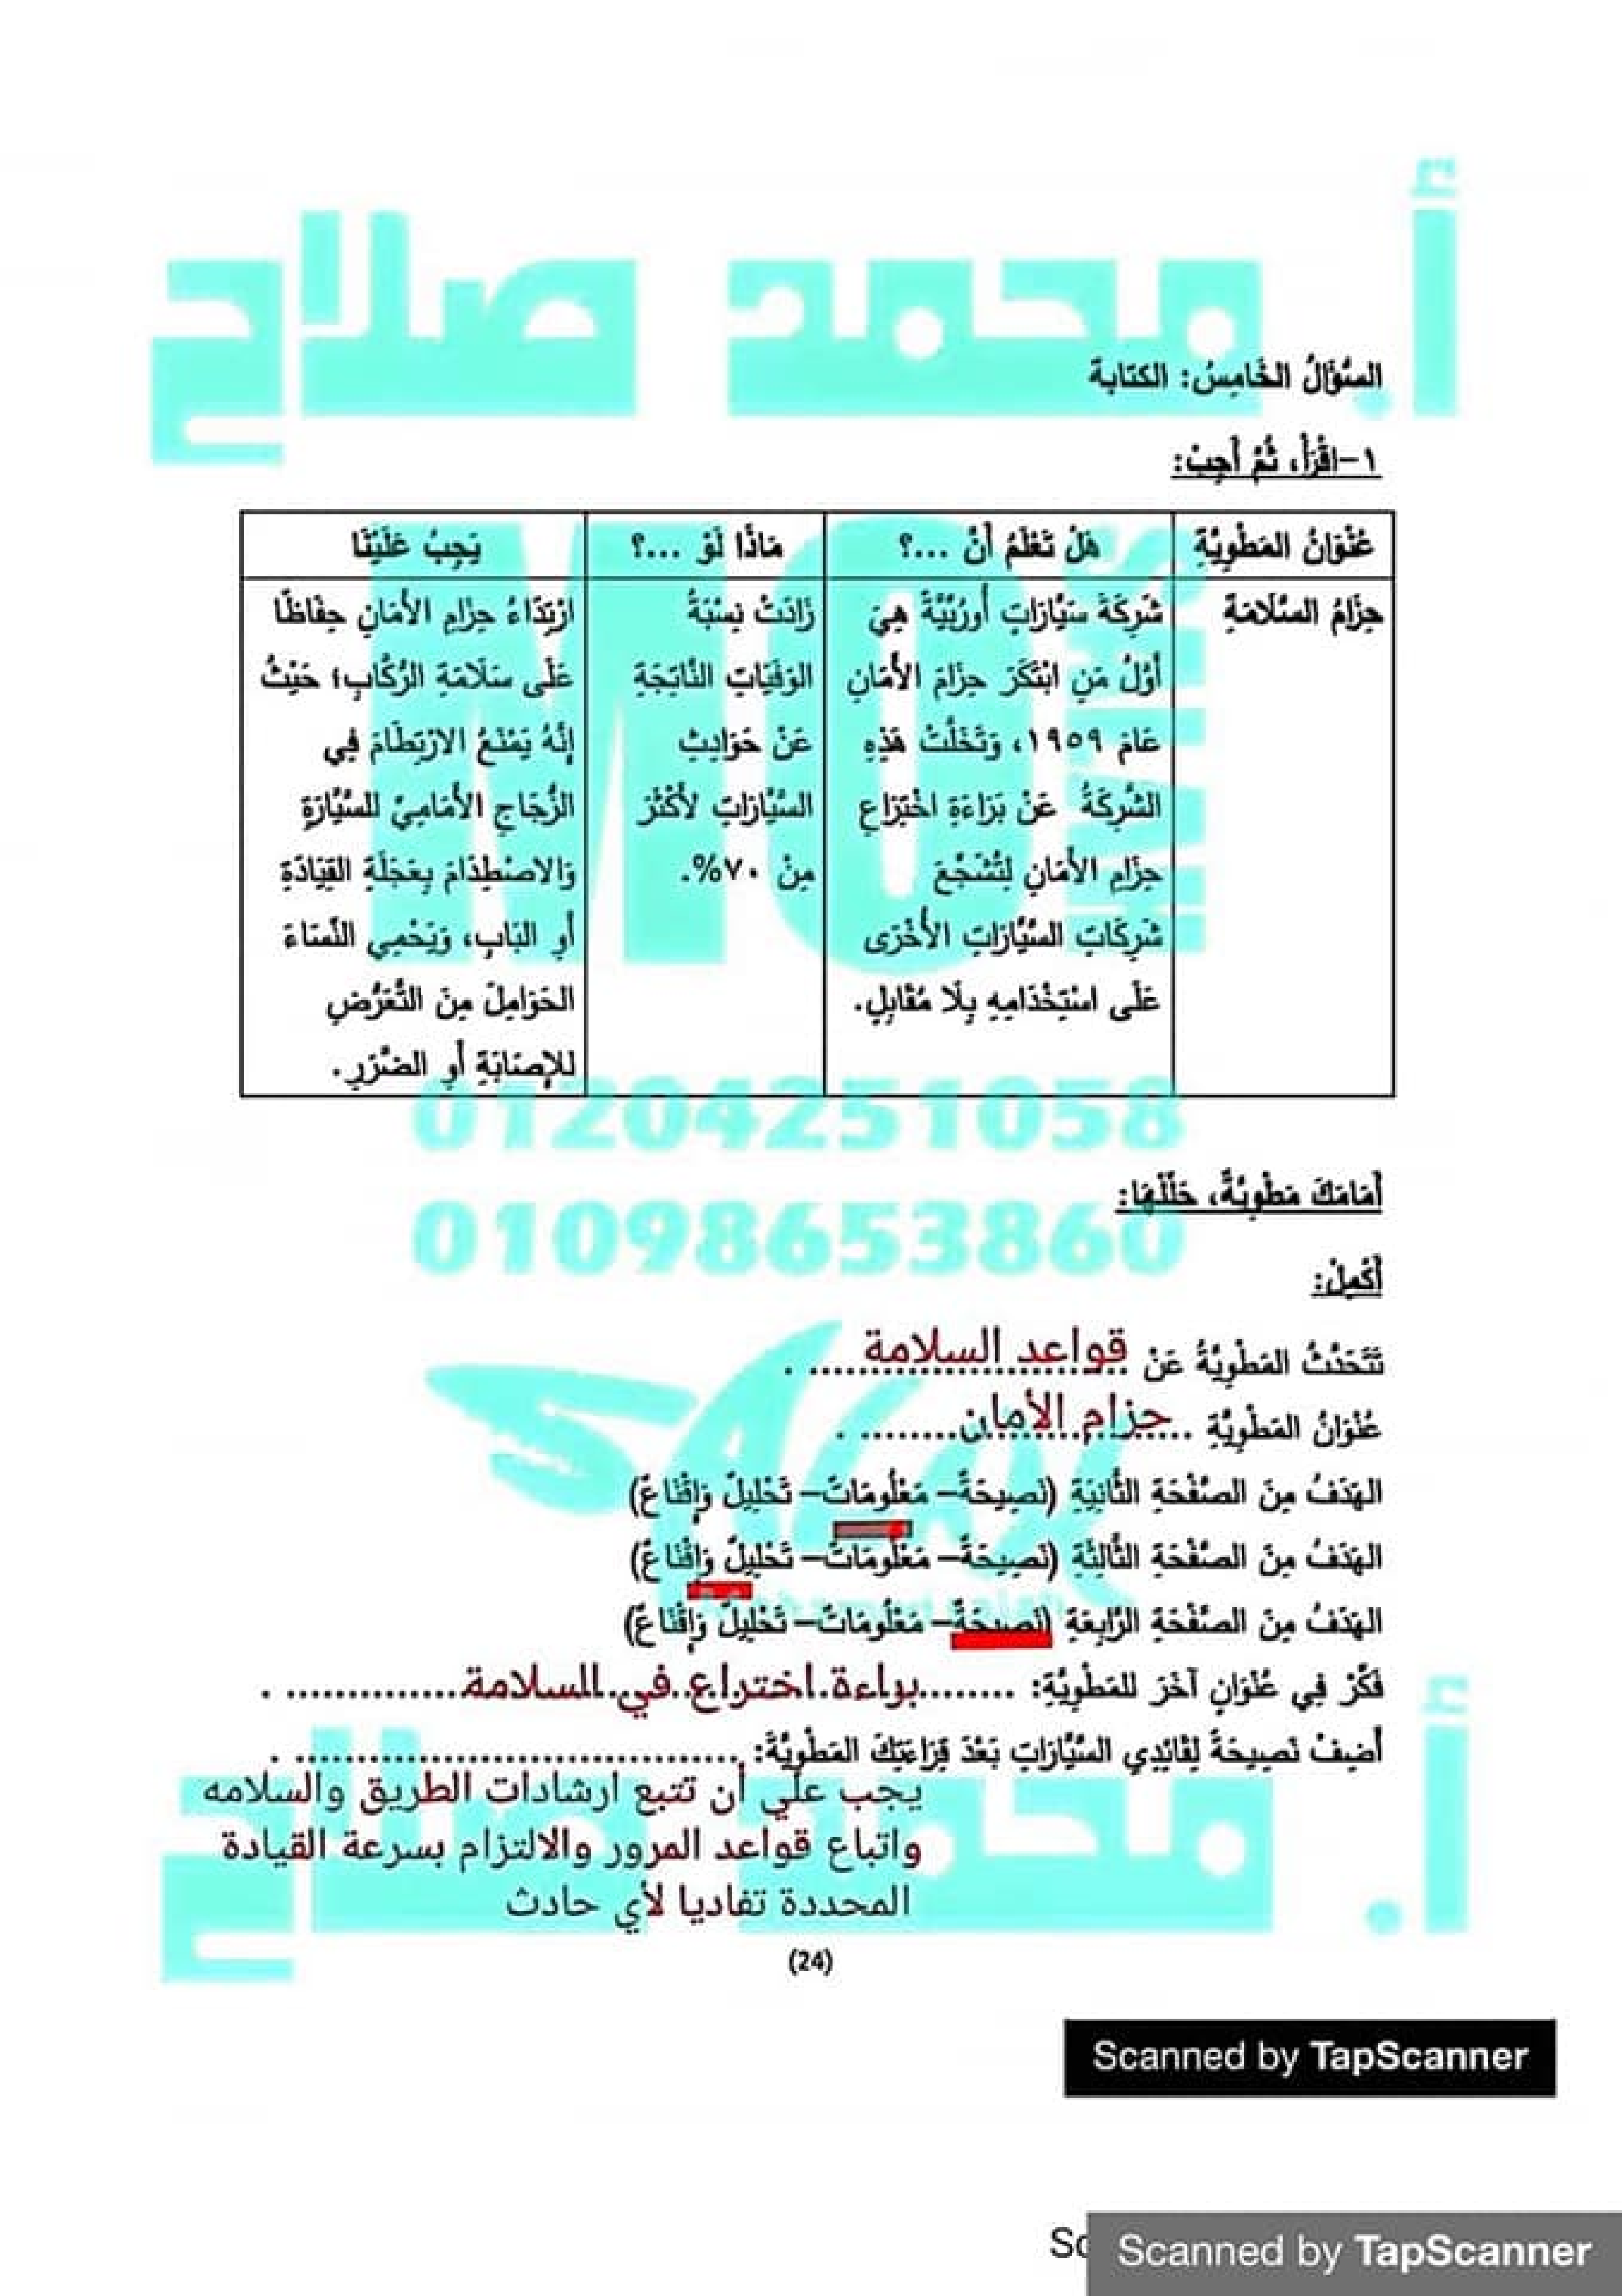 أ. محمد صلاح
السُّؤَالُ الخَامِسُ: الكتابة
١-اقْرَأْ، ثُمَّ أَجِبْ:
عُنْوَانُ المَطْوِيَّةِ
هَلْ تَعْلَمُ أَنَّ ...؟
مَاذَا لَوْ ...؟
يَجِبُ عَلَيْنَا
حِزَامُ السَّلَامَةِ
شَرِكَةَ سَيَّارَاتٍ أُورُبِّيَّةً هِيَ
أَوَّلُ مَنِ ابْتَكَرَ حِزَامَ الأَمَانِ
عَامَ ١٩٥٩، وَتَخَلَّتْ هَذِهِ
الشَّرِكَةُ عَنْ بَرَاءَةِ اخْتِرَاعِ
حِزَامِ الأَمَانِ لِتُشَجِّعَ
شَرِكَاتِ السَّيَّارَاتِ الأُخْرَى
عَلَى اسْتِخْدَامِهِ بِلَا مُقَابِلٍ.
زَادَتْ نِسْبَةُ
الوَفَيَاتِ النَّاتِجَةِ
عَنْ حَوَادِثِ
السَّيَّارَاتِ لأَكْثَرَ
مِنْ ٧٠%.
ارْتِدَاءُ حِزَامِ الأَمَانِ حِفَاظًا
عَلَى سَلَامَةِ الرُّكَّابِ؛ حَيْثُ
إِنَّهُ يَمْنَعُ الارْتِطَامَ فِي
الزُّجَاجِ الأَمَامِيِّ للسَّيَّارَةِ
وَالاصْطِدَامَ بِعَجَلَةِ القِيَادَةِ
أَوِ البَابِ، وَيَحْمِي النِّسَاءَ
الحَوَامِلَ مِنَ التَّعَرُّضِ
للإِصَابَةِ أَوِ الضَّرَرِ.
01204251058
01098653860
أَمَامَكَ مَطْوِيَّةٌ، حَلِّلْهَا:
أَكْمِلْ:
تَتَحَدَّثُ المَطْوِيَّةُ عَنْ قواعد السلامة .
عُنْوَانُ المَطْوِيَّةِ حزام الأمان .
الهَدَفُ مِنَ الصَّفْحَةِ الثَّانِيَةِ (نَصِيحَةٌ– مَعْلُومَاتٌ– تَحْلِيلٌ وَإِقْنَاعٌ)
الهَدَفُ مِنَ الصَّفْحَةِ الثَّالِثَةِ (نَصِيحَةٌ– مَعْلُومَاتٌ– تَحْلِيلٌ وَإِقْنَاعٌ)
الهَدَفُ مِنَ الصَّفْحَةِ الرَّابِعَةِ (نَصِيحَةٌ– مَعْلُومَاتٌ– تَحْلِيلٌ وَإِقْنَاعٌ)
فَكِّرْ فِي عُنْوَانٍ آخَرَ للمَطْوِيَّةِ: براءة اختراع في السلامة .
أَضِفْ نَصِيحَةً لِقَائِدِي السَّيَّارَاتِ بَعْدَ قِرَاءَتِكَ المَطْوِيَّةَ: .
يجب علي أن تتبع ارشادات الطريق والسلامه
واتباع قواعد المرور والالتزام بسرعة القيادة
المحددة تفاديا لأي حادث
أ. محمد صلاح
(24)
Scanned by TapScanner
Scanned by TapScanner